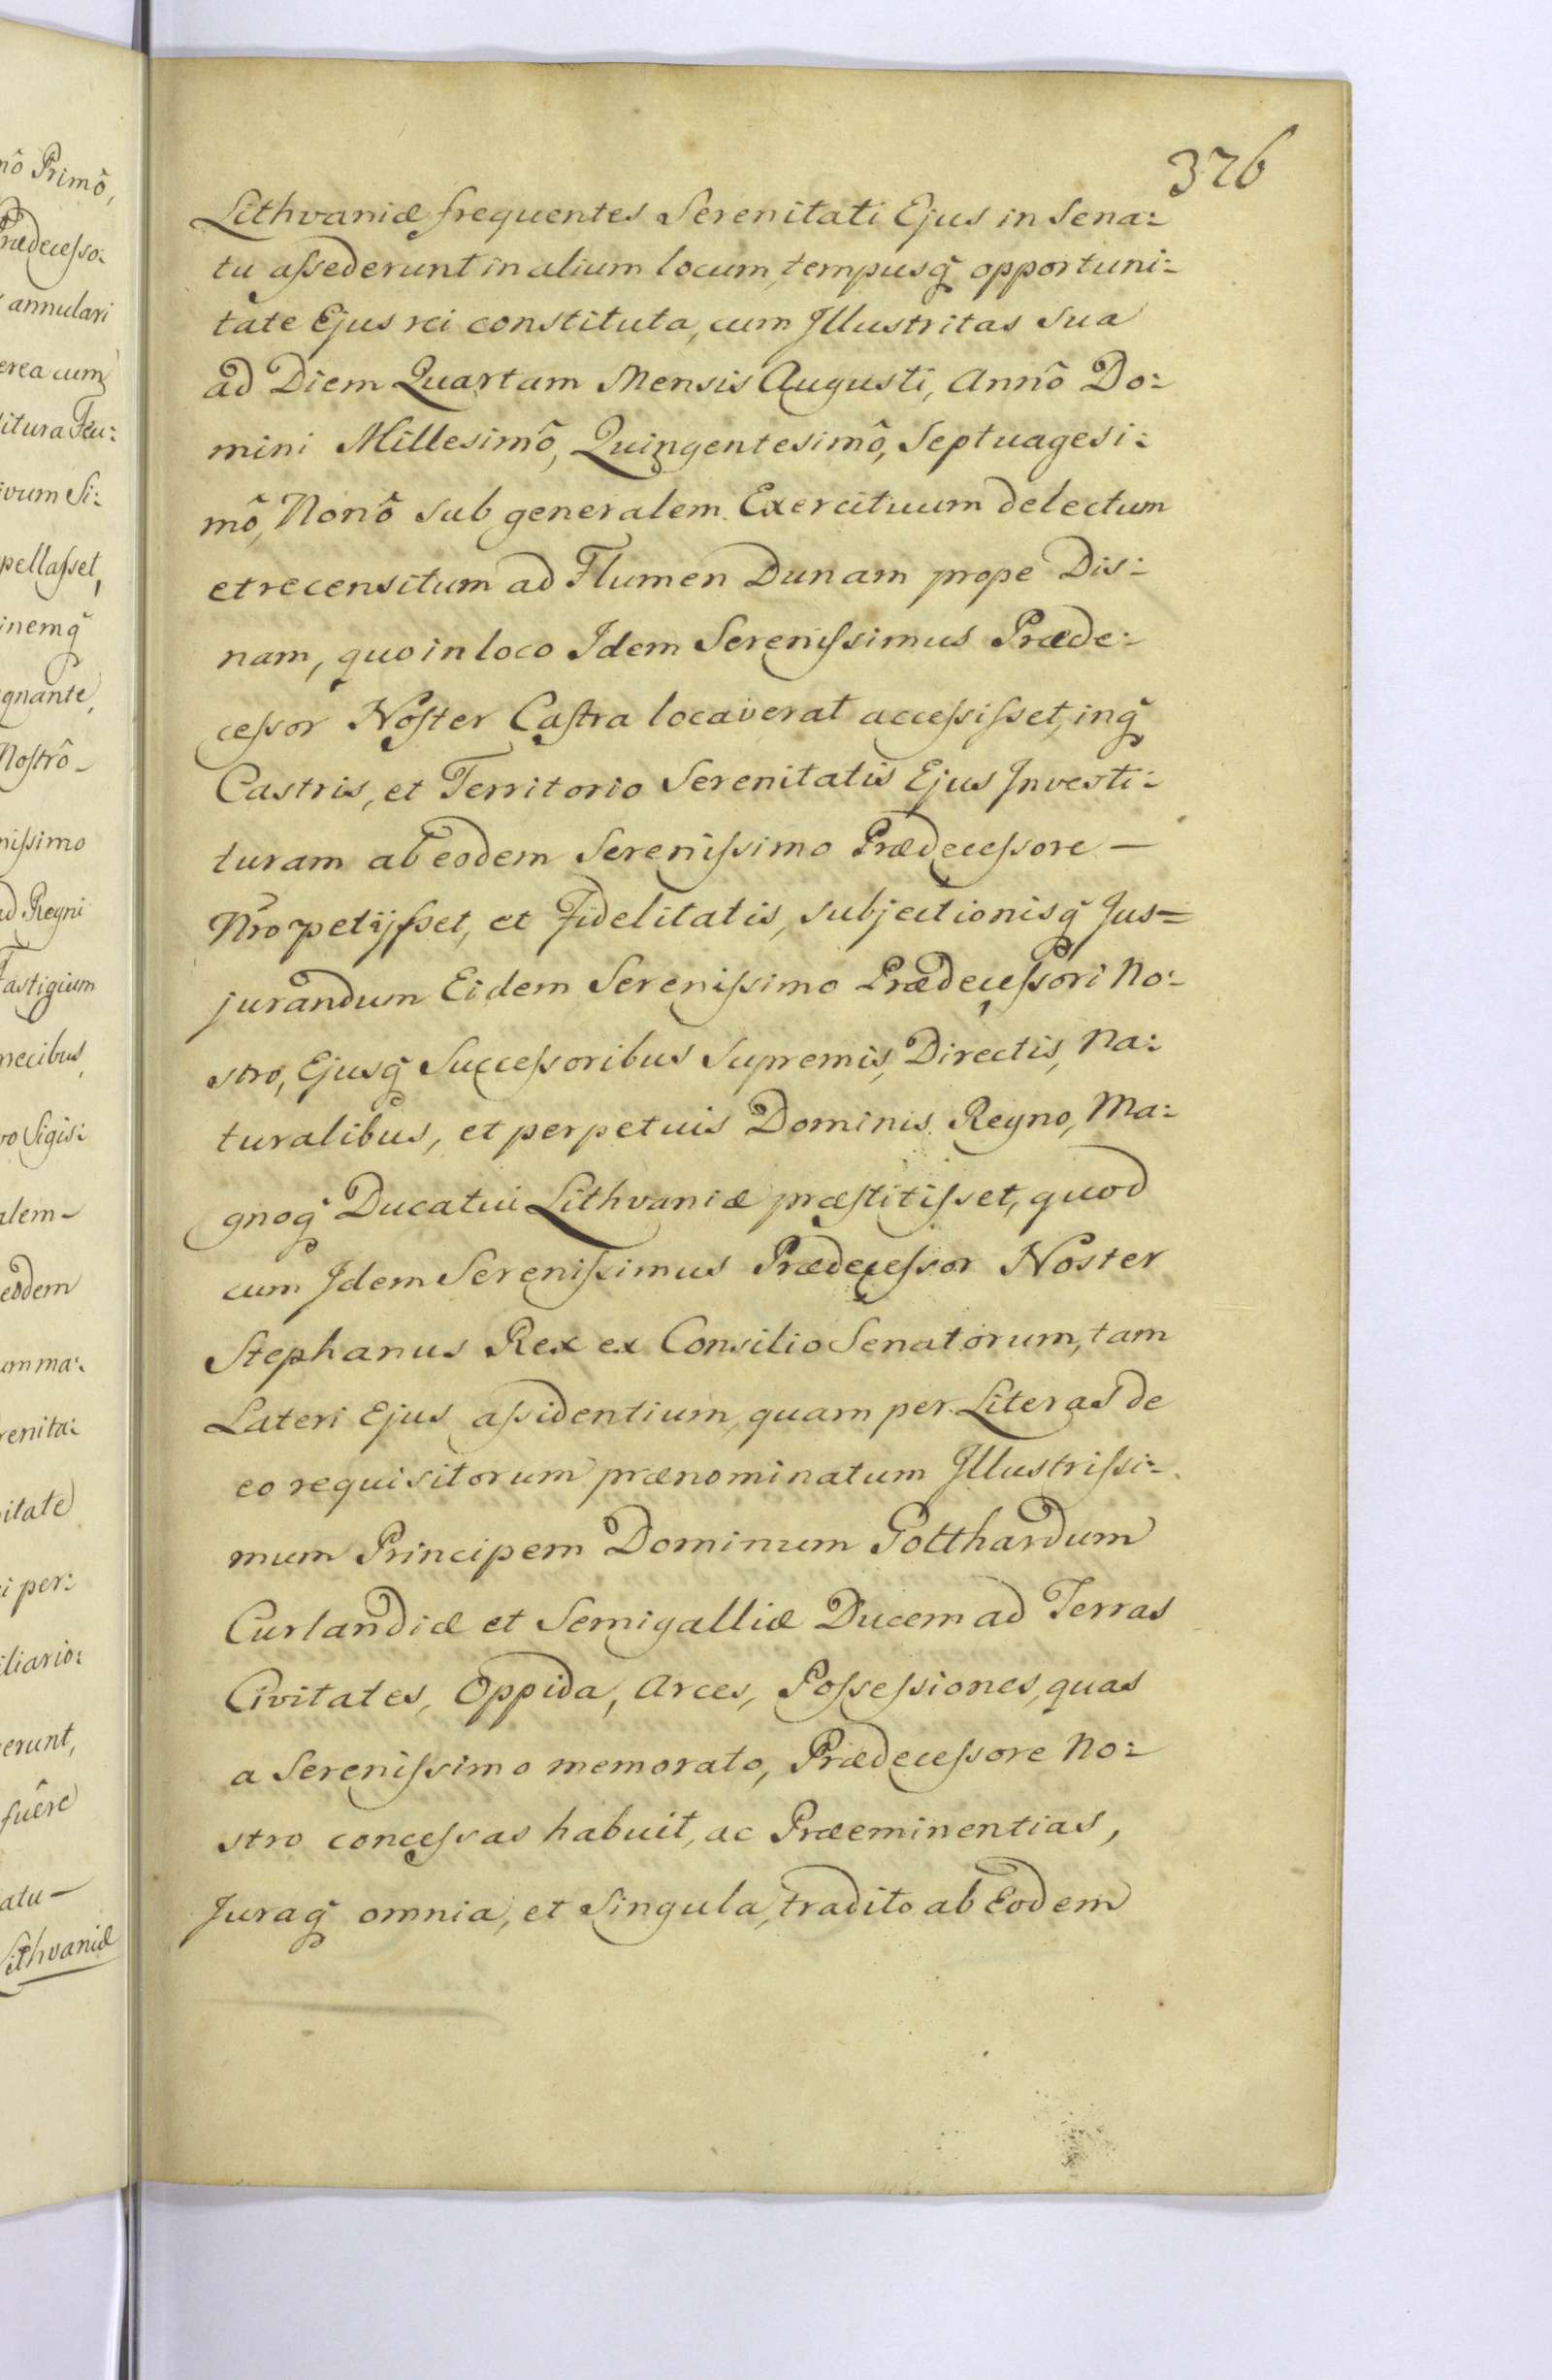 376
Lithvaniæ frequentes Serenitati Ejus in Sena:
tu aſsederunt in alium locum, tempusq̃ opportuni:
tate Ejus rei constituta, cum Jllustritas Sua
ad Diem Quartam Mensis Augusti, Annô Do:
mini Millesimô, Quingentesimô, Septuagesi:
mô, Nonô sub generalem Exercituum delectum
et recensitum ad Flumen Dunam prope Dis:
nam, quo in loco Jdem Sereniſsimus Præde:
ceſsor Noſter Caſtra locaverat acceſsiſset, inq̃
Castris, et Territorio Serenitatis Ejus Jnvesti:
turam ab eodem Sereniſsimo Prædeceſsore –
Nr̃o petijſset, et Fidelitatis, subjectionisq̃ Jus=
jurandum Eidem Sereniſsimo Prædeceſsori No:
stro, Ejusq̃ Succeſsoribus Supremis, Directis, Na:
turalibus, et perpetuis Dominis Regno, Ma:
gnoq̃ Ducatui Lithvaniæ præſtitiſset, quod
cum Jdem Sereniſsimus Prædeceſsor Noster
Stephanus Rex ex Consilio Senatorum, tam
Lateri Ejus aſsidentium, quam per Literas de
eo requisitorum prænominatum Jllustriſsi:
mum Principem Dominum Gotthardum
Curlandiæ et Semigalliæ Ducem ad Terras
Civitates, Oppida, Arces, Poſseſsiones, quas
a Sereniſsimo memorato, Prædeceſsore No:
stro conceſsas habuit, ac Præeminentias,
Juraq̃ omnia, et Singula, tradito ab Eodem
nô Primô,
Prædeceſso:
annulari
erea cum
itura Feu:
ivum Si:
pellaſset,
inemq̃
gnante,
Noſtrô –
niſsimo
ad Regni
Fastigium
necibus,
vo Sigis:
alem –
eodem
um ma:
renita:
itate
i per:
iliario:
erunt,
fuêre
atu –
Lithvaniæ